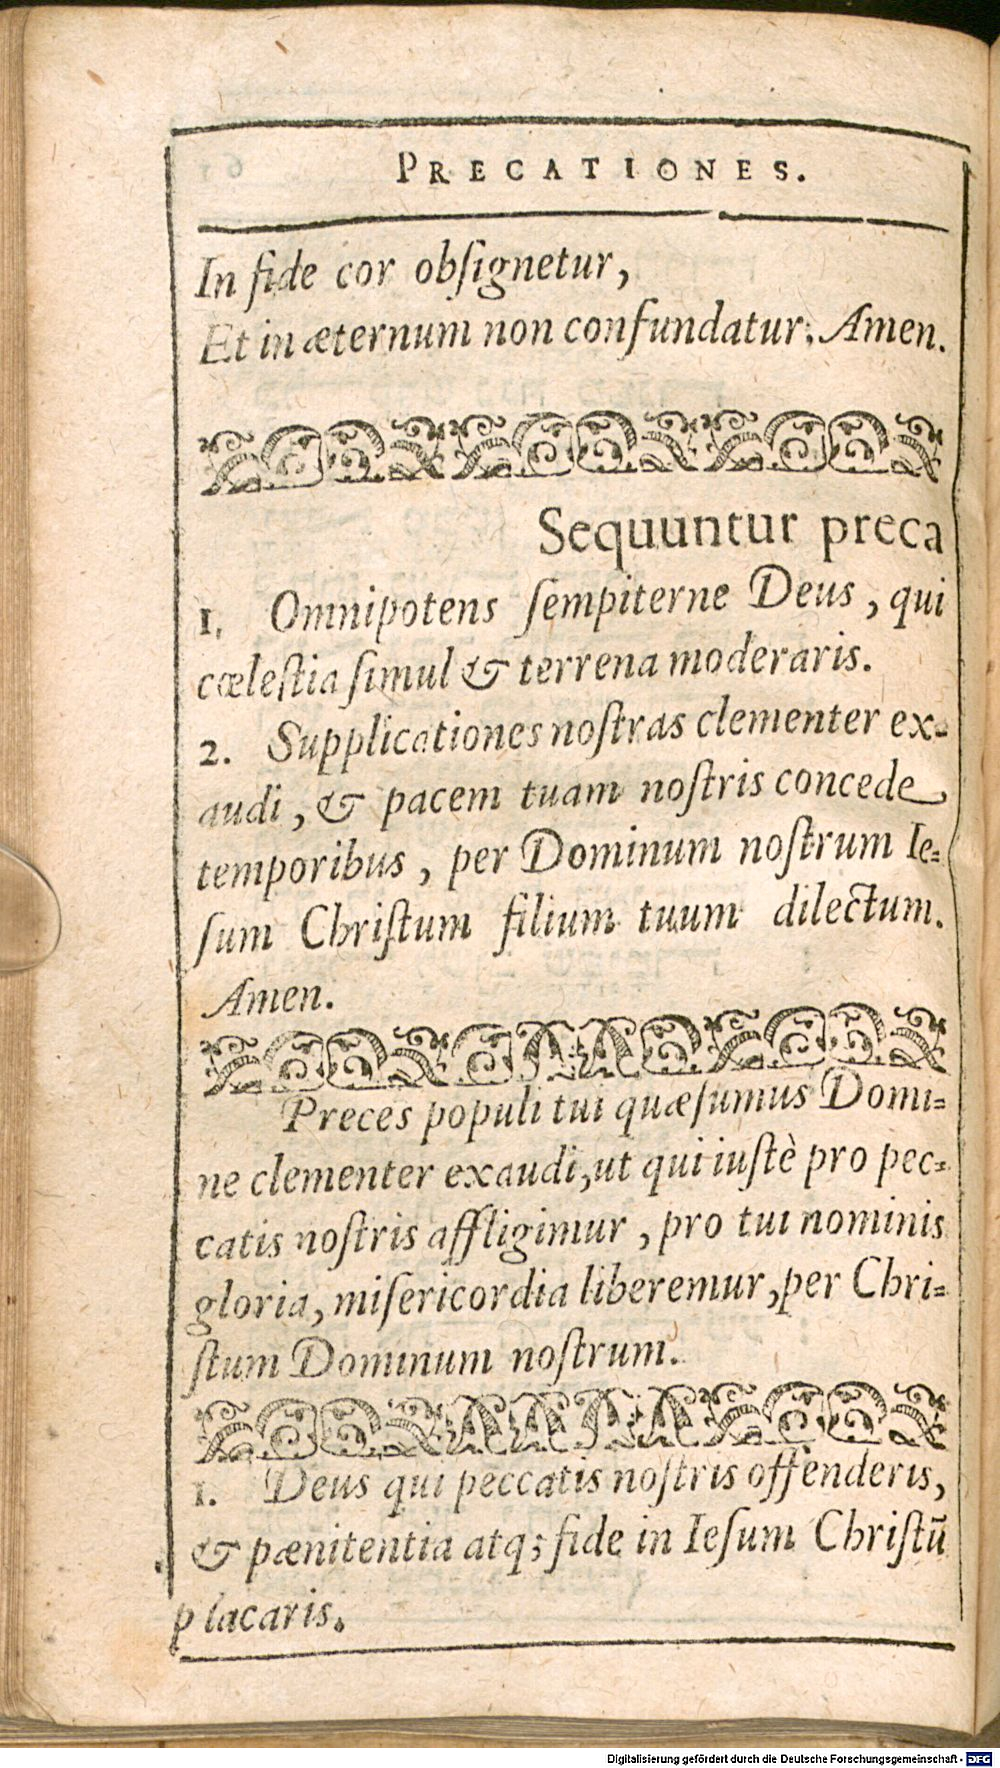 PRECATIONES.
In fide cor obſignetur,
Et in æternum non confundatur. Amen.
Sequuntur preca
1. Omnipotens ſempiterne Deus, qui
cœleſtia ſimul & terrena moderaris.
2. Supplicationes noſtras clementer ex-
audi, & pacem tuam noſtris concede
temporibus, per Dominum noſtrum Ie-
ſum Chriſtum filium tuum dilectum.
Amen.
Preces populi tui quæſumus Domi-
ne clementer exaudi, ut qui iuſtè pro pec-
catis noſtris affligimur, pro tui nominis
gloria, miſericordia liberemur, per Chri-
ſtum Dominum noſtrum.
1. Deus qui peccatis noſtris offenderis,
& pænitentia atq; fide in Ieſum Chriſtū
placaris.
Digitalisierung gefördert durch die Deutsche Forschungsgemeinschaft - DFG